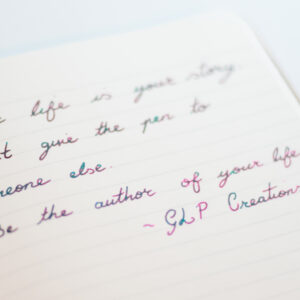 life is your story.
give the pen to
someone else.
Be the author of your life.
~ GLP Creations